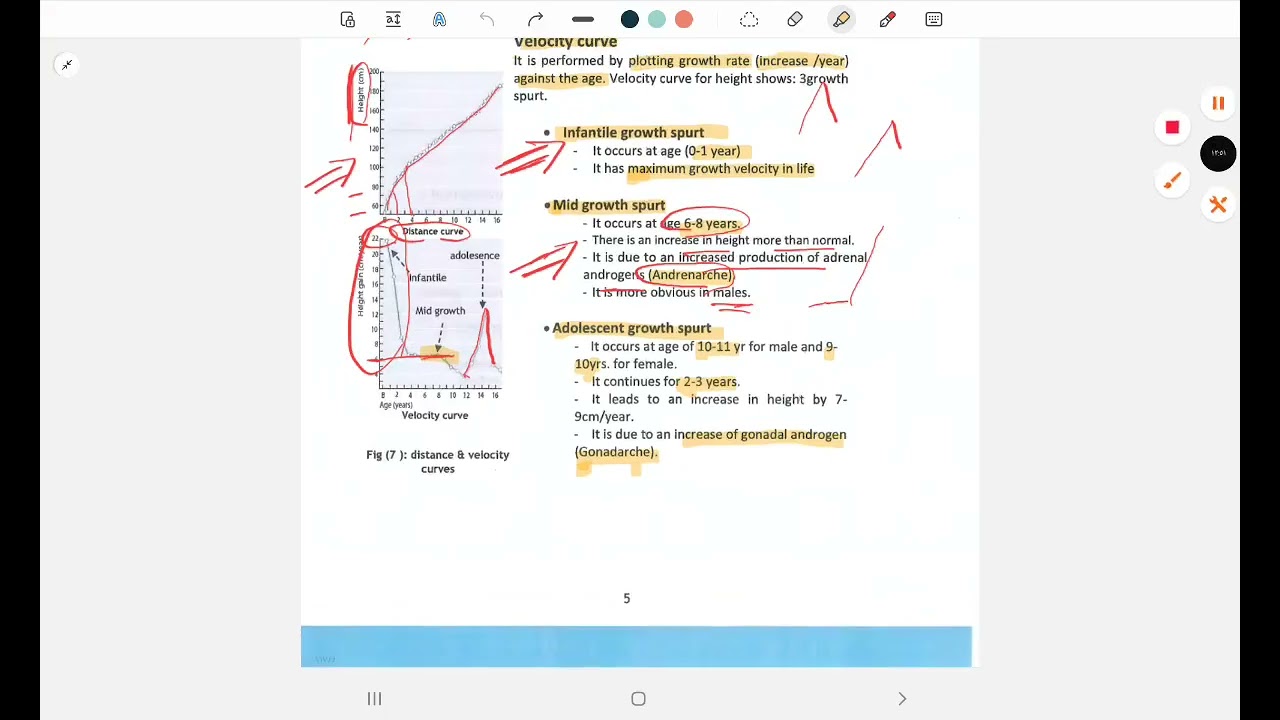 Velocity curve
It is performed by plotting growth rate (increase /year)
against the age. Velocity curve for height shows: 3growth
spurt.
• Infantile growth spurt
- It occurs at age (0-1 year)
- It has maximum growth velocity in life
• Mid growth spurt
- It occurs at age 6-8 years.
- There is an increase in height more than normal.
- It is due to an increased production of adrenal
androgens (Andrenarche).
- It is more obvious in males.
• Adolescent growth spurt
- It occurs at age of 10-11 yr for male and 9-
10yrs. for female.
- It continues for 2-3 years.
- It leads to an increase in height by 7-
9cm/year.
- It is due to an increase of gonadal androgen
(Gonadarche).
Height (cm)
200
180
160
140
120
100
80
60
0 2 4 6 8 10 12 14 16
Distance curve
Height gain (cm/year)
22
20
18
16
14
12
10
8
6
adolesence
Infantile
Mid growth
0 2 4 6 8 10 12 14 16
Age (years)
Velocity curve
Fig (7 ): distance & velocity
curves
5
١٢:٥٦